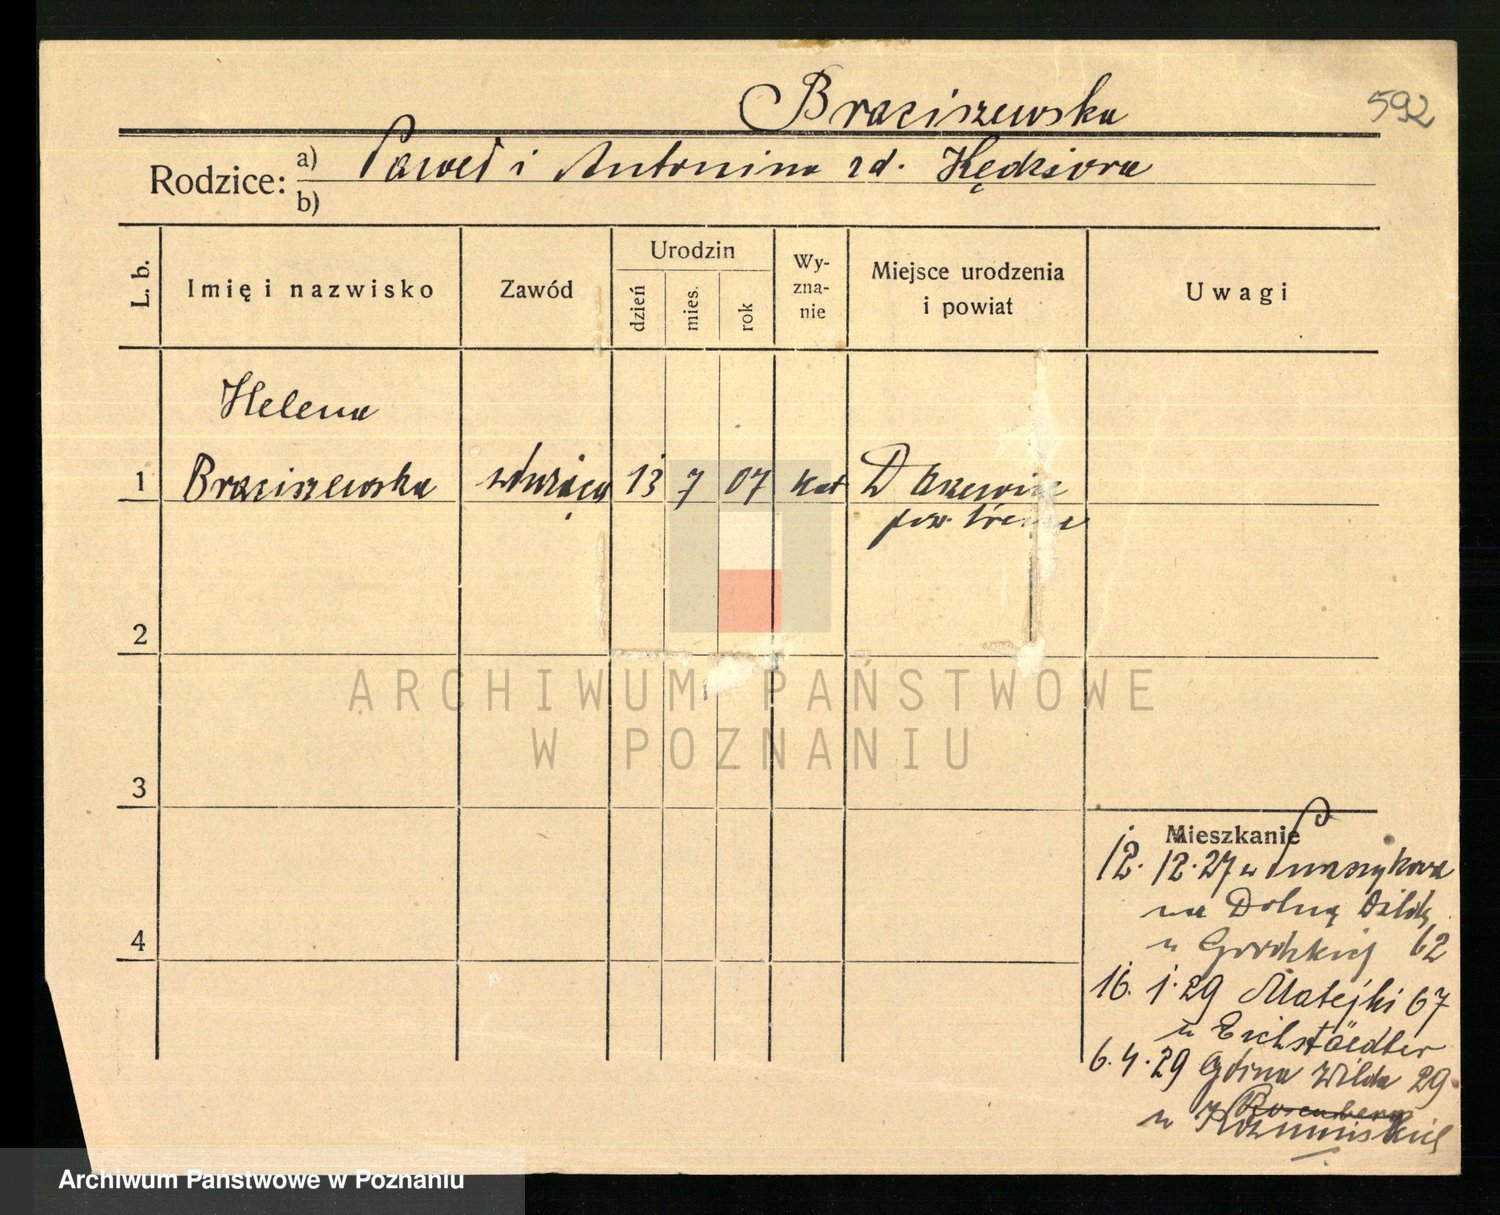 592
Braciszewska
Rodzice: a) Paweł i Antonina zd. Kędziora
b)
L. b.
Imię i nazwisko
Zawód
Urodzin
dzień
mies.
rok
Wy-
zna-
nie
Miejsce urodzenia
i powiat
Uwagi
Helena
1 Braciszewska służąca 13 7 07 kat
pow. Śrem
2
3
4
Mieszkanie
12. 12. 27 w
na Dolną Wildę
u 62
16. 1. 29 Matejki 67
u Eichstäedter
6. 4. 29 Górna Wilda 29
u Rosenberg
ARCHIWUM PAŃSTWOWE
W POZNANIU
Archiwum Państwowe w Poznaniu